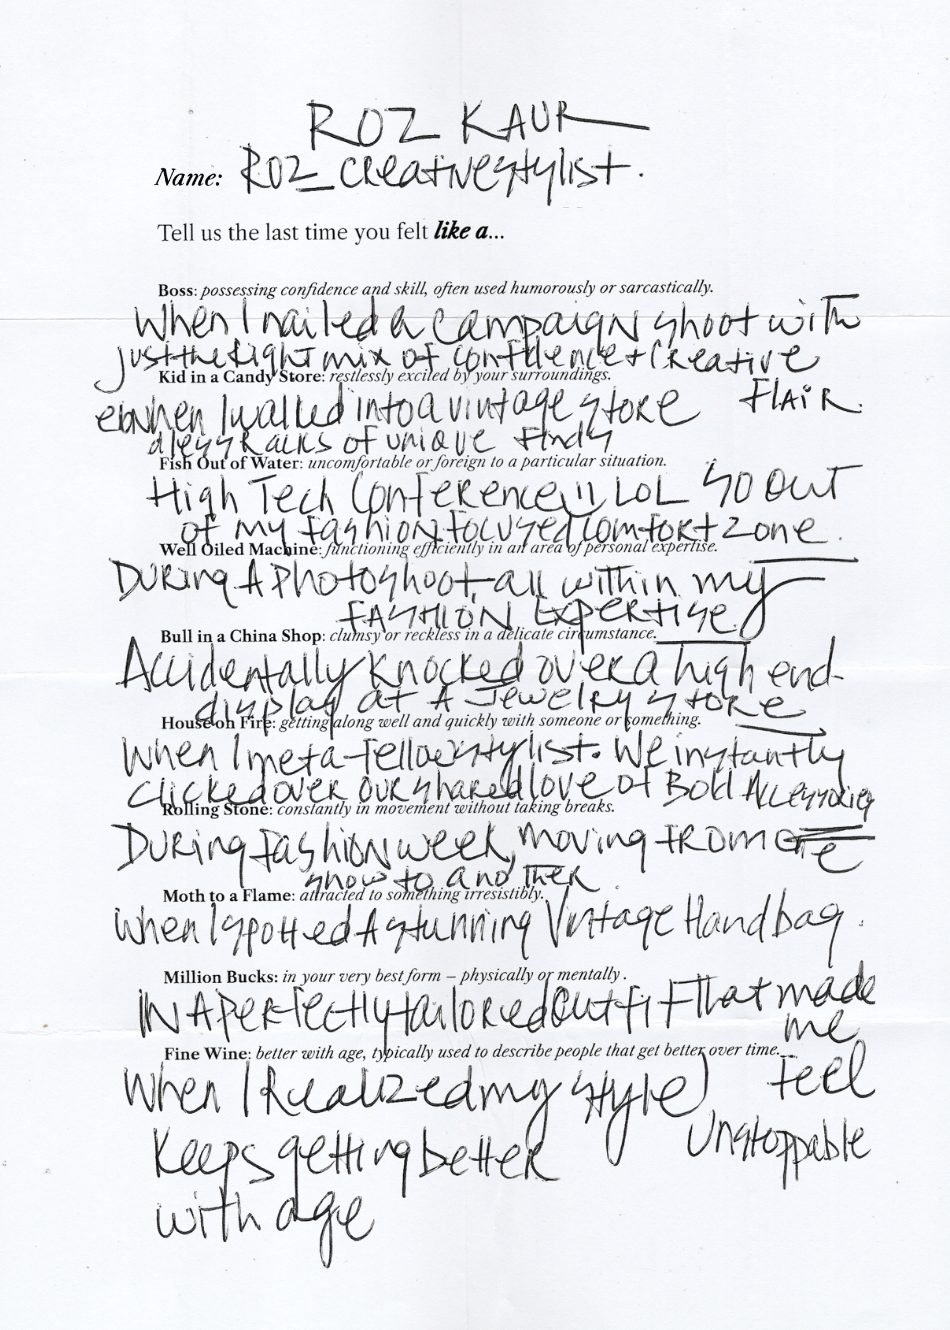 ROZ KAUR
Name: ROZ_creativestylist.
Tell us the last time you felt like a...
Boss: possessing confidence and skill, often used humorously or sarcastically.
When I nailed a campaign shoot with
just the right mix of confidence + creative
FLAIR.
Kid in a Candy Store: restlessly excited by your surroundings.
When I walked into a vintage store
racks of unique Finds
Fish Out of Water: uncomfortable or foreign to a particular situation.
High Tech Conference!! LOL SO OUT
of my fashion focused comfort zone.
Well Oiled Machine: functioning efficiently in an area of personal expertise.
DURING A Photoshoot, all within my
FASHION EXPERTISE.
Bull in a China Shop: clumsy or reckless in a delicate circumstance.
Accidentally knocked over a high end
display at A Jewelry store
House on Fire: getting along well and quickly with someone or something.
When I met a fellow stylist. We instantly
clicked over our shared love of Bold Accessories
Rolling Stone: constantly in movement without taking breaks.
During fashion week, moving from one
show to another
Moth to a Flame: attracted to something irresistibly.
When I spotted A stunning Vintage Handbag.
Million Bucks: in your very best form – physically or mentally.
IN A Perfectly tailored Outfit That made
me
feel
Unstoppable
Fine Wine: better with age, typically used to describe people that get better over time.
When I Realized my style
Keeps getting better
with age